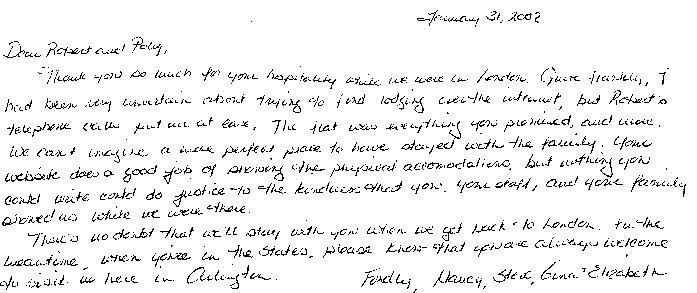 January 31, 2002
Dear Robert and Polly,
Thank you so much for your hospitality while we were in London. Quite frankly, I
had been very uncertain about trying to find lodging over the internet, but Robert's
telephone calls put me at ease. The flat was everything you promised, and more.
We can't imagine a more perfect place to have stayed with the family. Your
website does a good job of showing the physical accomodations, but nothing you
could write could do justice to the kindness that you, your staff, and your family
showed us while we were there.
There's no doubt that we'll stay with you when we get back to London. In the
meantime, when you're in the States, please know that you are always welcome
to visit us here in Arlington. Fondly, Nancy, Steve, Gina & Elizabeth